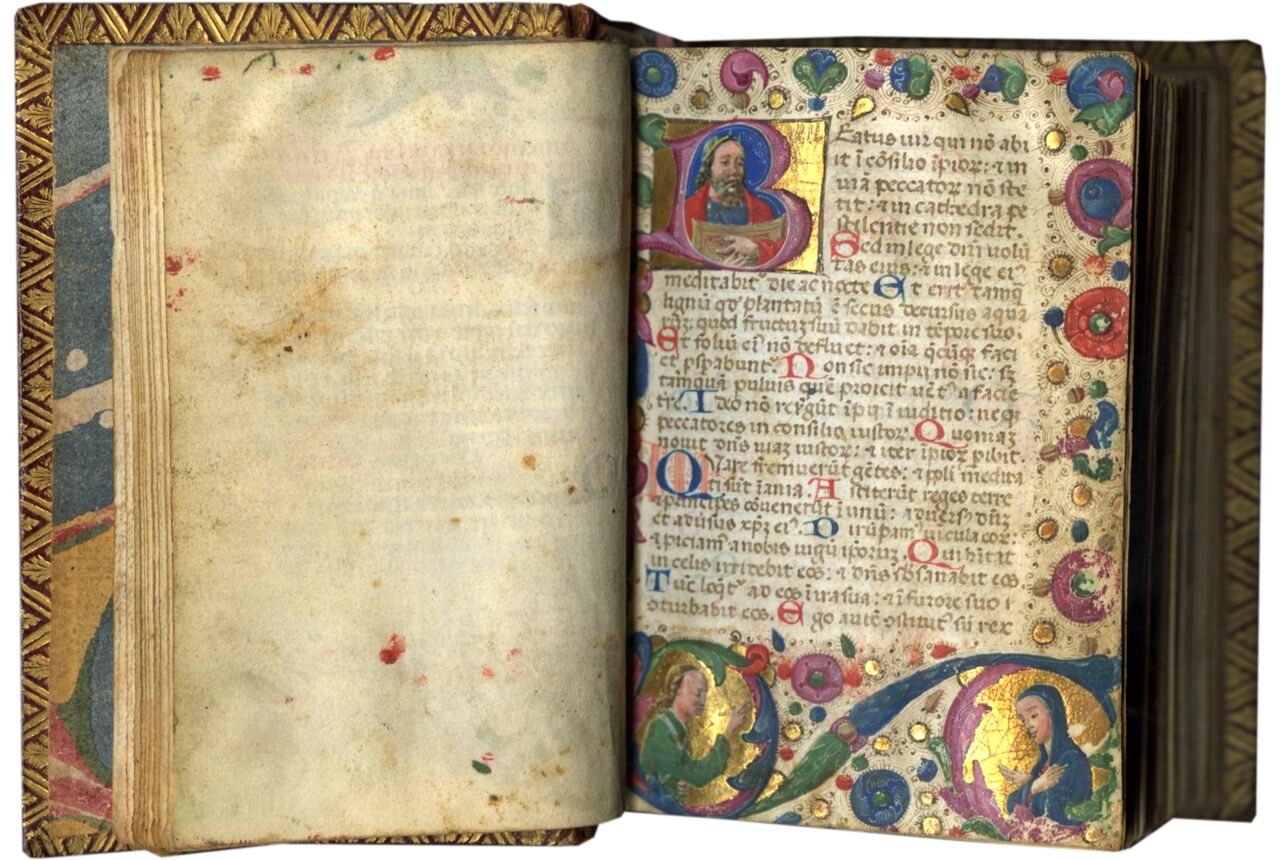 Beatus uir qui nō abi
it ī cōsilio īpioꝝ: ⁊ in
uia peccatoꝝ nō ste
tit: ⁊ in cathedra pe
stilentie non sedit.
Sed in lege dn̄i uolū
tas eius: ⁊ in lege eiꝰ
meditabit᷑ die ac nocte Et erit tamq̄
lignū qd̓ plantatū ē secus decursus aqua
ruꝫ: quod fructuꝫ suū dabit in tēpore suo.
Et foliū eiꝰ nō defluet: ⁊ oīa q̄cūqꝫ faci
et ꝓspabunt᷑. Non sic impij nō sic: sꝫ
tamquā puluis quē proicit uētꝰ a facie
tr̄e. Ideo nō resurgūt īpij ī iuditio: neqꝫ
peccatores in consilio iustoꝝ. Quoniaꝫ
nouit dn̄s uiaꝫ iustoꝝ: ⁊ iter īpioꝝ pibit.
Quare fremuerūt gētes: ⁊ ppl̓i medita
ti sūt īania. Astiterūt reges terre
⁊ principes cōuenerūt ī unū: aduersꝰ dn̄ꝫ
et adūsus xp̄ꝫ eiꝰ. Dirūpamꝰ uīcula eoꝝ:
⁊ ꝓiciamꝰ a nobis iugū ipoꝝuꝫ. Qui hītat
in celis irridebit eos: ⁊ dn̄s sbsanabit eos
Tūc loqet᷑ ad eos ī ira sua: ⁊ ī furore suo ꝯ
oturbabit eos. Ego autē ꝯstitutꝰ sū rex